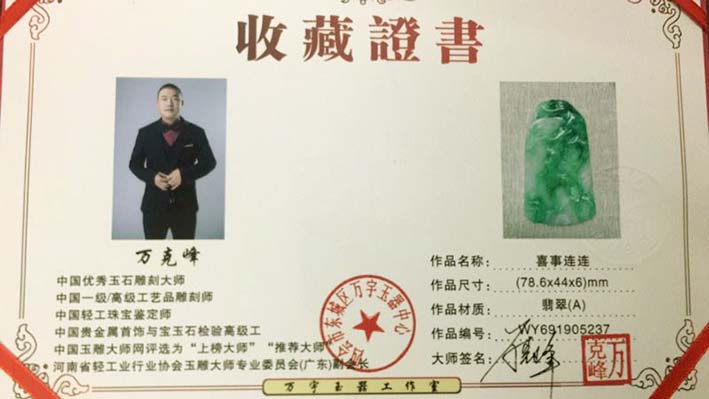 收藏證書
万克峰
中国优秀玉石雕刻大师
中国一级/高级工艺品雕刻师
中国轻工珠宝鉴定师
中国贵金属首饰与宝玉石检验高级工
中国玉雕大师网评选为“上榜大师”“推荐大师”
河南省轻工业行业协会玉雕大师专业委员会(广东)副会长
四会市东城区万宇玉器中心
作品名称： 喜事连连
作品尺寸： (78.6x44x6)mm
作品材质： 翡翠(A)
作品编号： WY691905237
大师签名：
万克峰
万宇玉器工作室